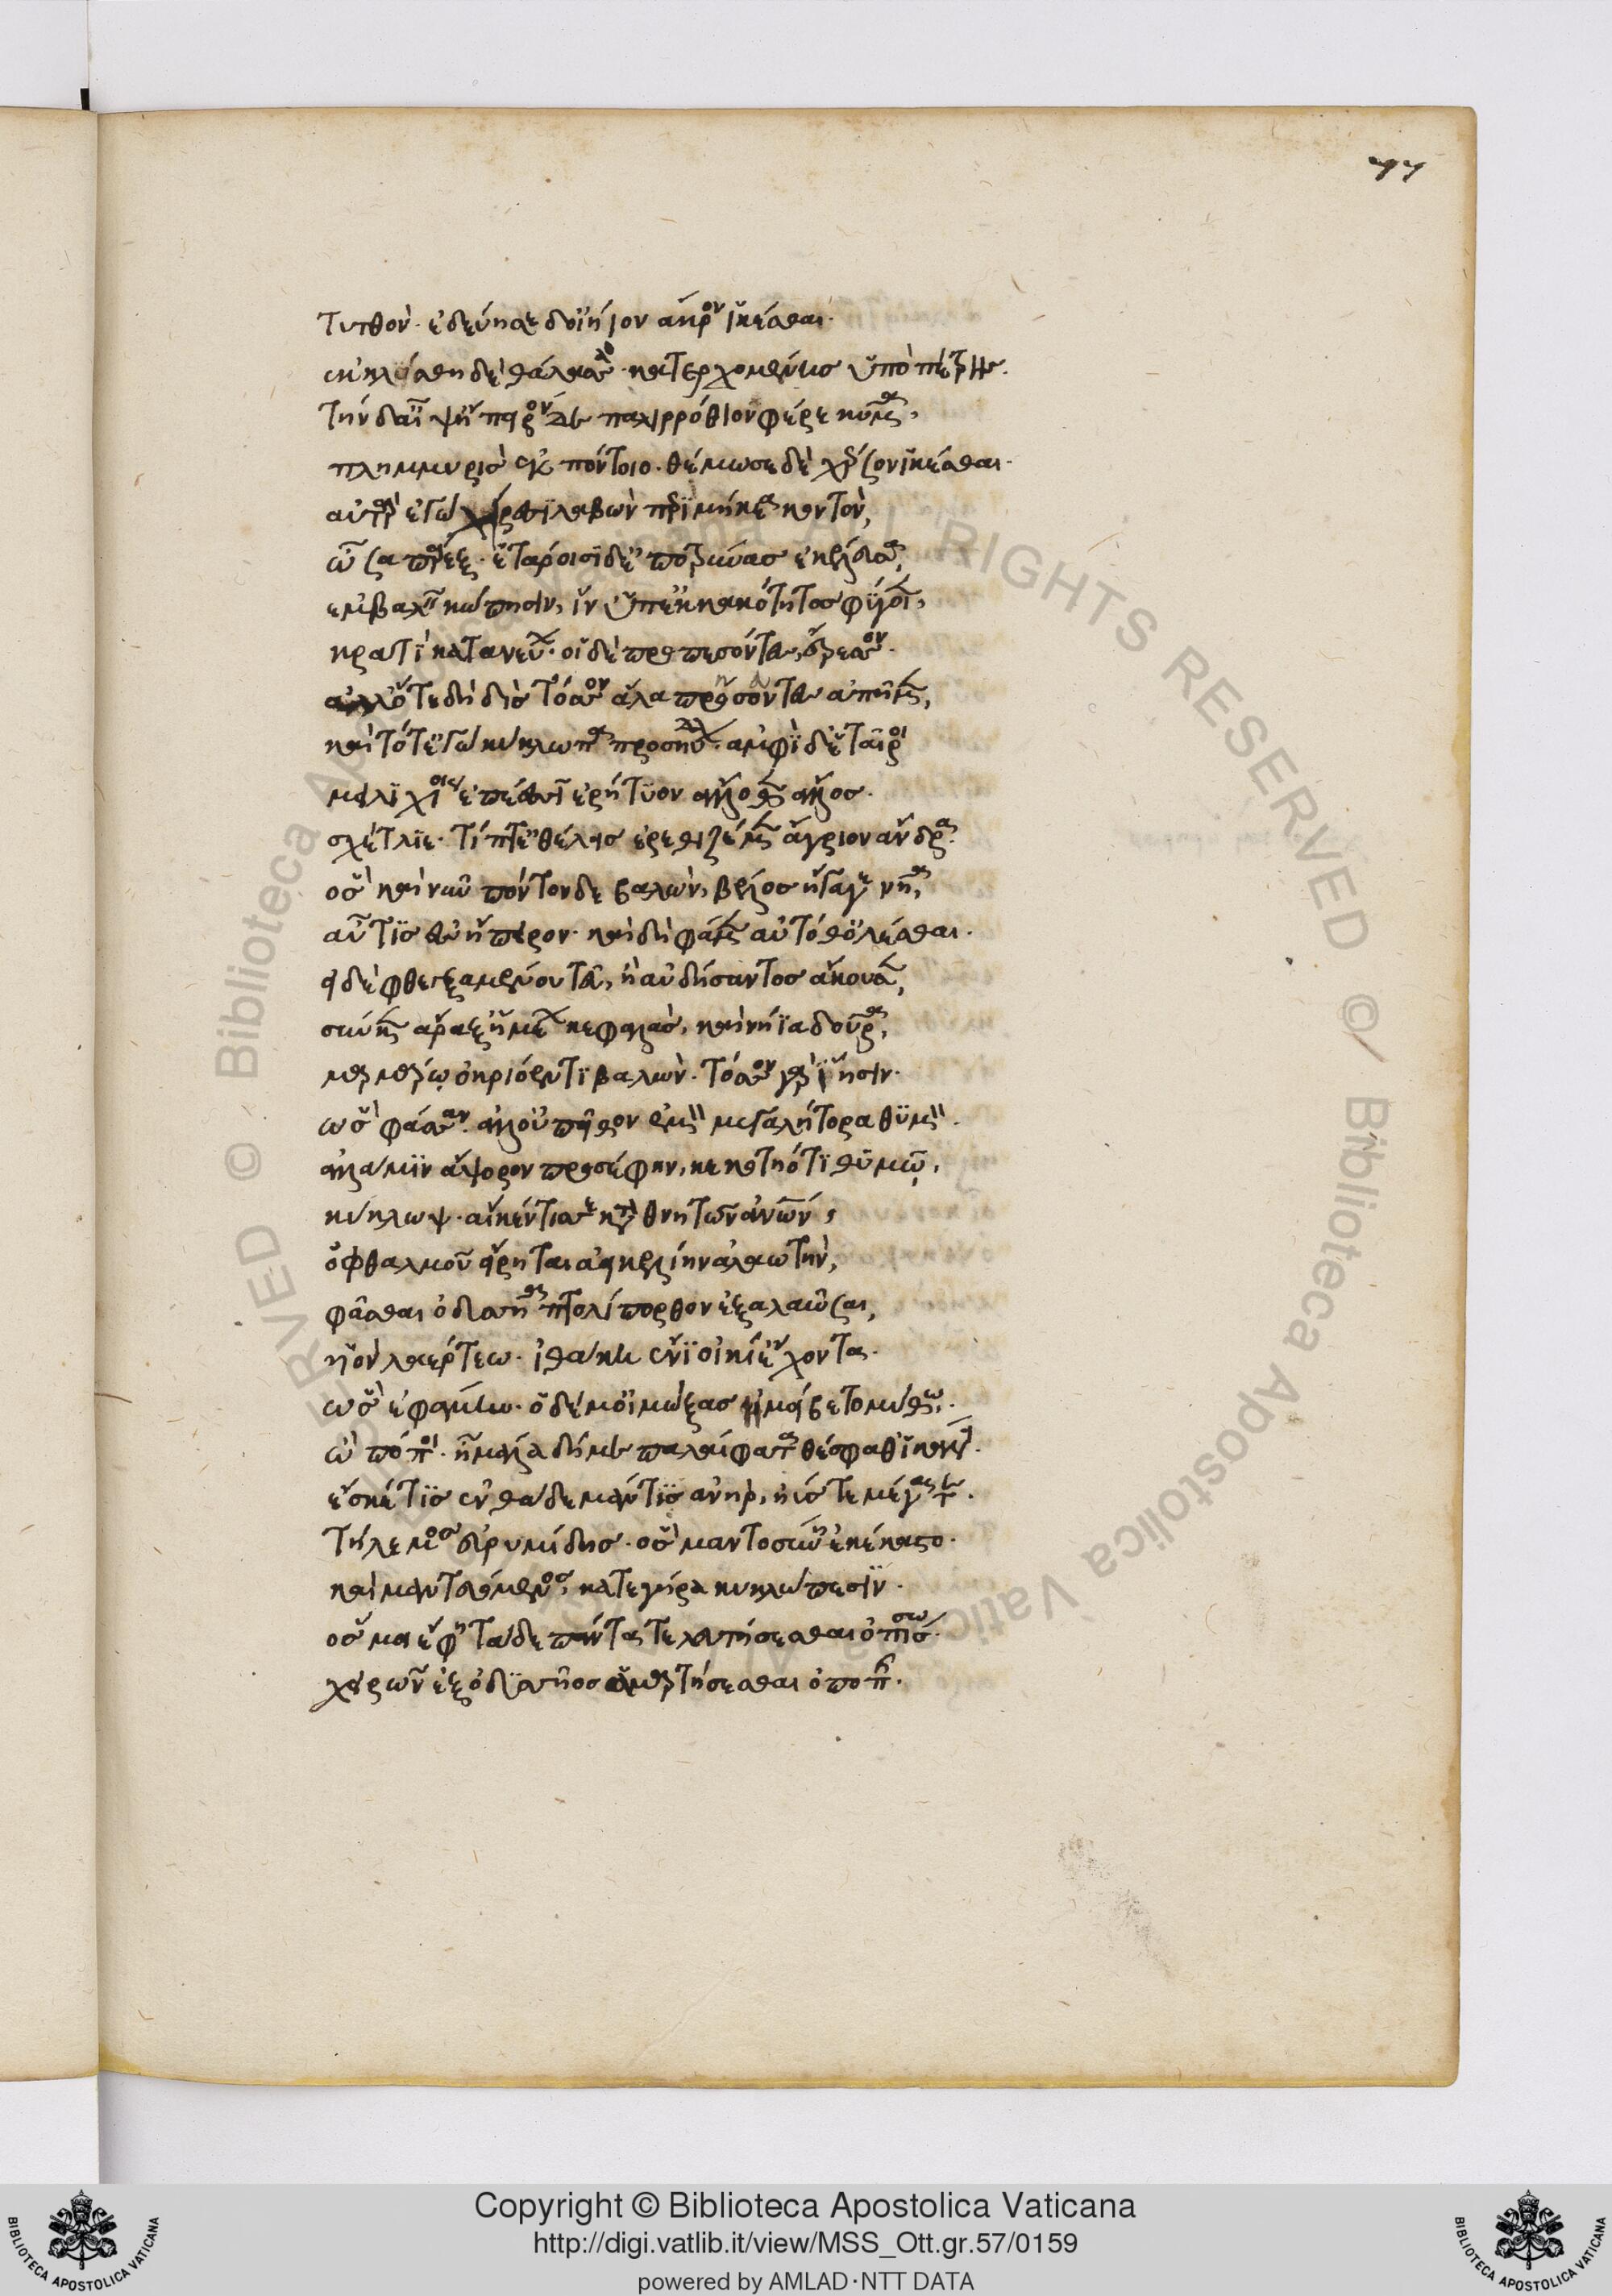 τυτθὸν· ἐδεύησε δ' οἰήϊον ἄκρον ἱκέσθαι·
ἐκλύσθη δὲ θάλασσα κατερχομένης ὑπὸ πέτρης·
τὴν δ' αἶψ' ἤπειρόνδε παλιρρόθιον φέρε κῦμα,
πλημμυρὶς ἐκ πόντοιο· θέμωσε δὲ χέρσον ἱκέσθαι·
αὐτὰρ ἐγὼ χείρεσσι λαβὼν περιμήκεα κοντὸν,
ὦσα παρέξ· ἑτάροισι δ' ἐποτρύνας ἐκέλευσα,
ἐμβαλέειν κώπησιν, ἵν' ὑπὲκ κακότητος φύγοιμεν,
κρατὶ κατανεύων· οἱ δὲ προπεσόντες ἔρεσσον·
ἀλλ' ὅτε δὴ δὶς τόσσον ἅλα πρήσσοντες ἀπῆμεν,
καὶ τότ' ἐγὼ κύκλωπα προσηύδων· ἀμφὶ δ' ἑταῖροι
μειλιχίοις ἐπέεσσιν ἐρήτυον ἄλλοθεν ἄλλος·
σχέτλιε· τίπτ' ἐθέλεις ἐρεθιζέμεν ἄγριον ἄνδρα·
ὃς καὶ νῦν πόντονδε βαλὼν, βέλος ἤγαγε νῆα,
αὖτις ἐς ἤπειρον· καὶ δὴ φάμεν αὐτόθ' ὀλέσθαι·
εἰ δὲ φθεγξαμένου τευ, ἢ αὐδήσαντος ἄκουσεν,
σύν κεν ἄραξ' ἡμέων κεφαλὰς, καὶ νήϊα δοῦρα,
μαρμάρῳ ὀκριόεντι βαλὼν· τόσσον γὰρ ἵησιν·
ὣς φάσαν· ἀλλ' οὐ πεῖθον ἐμὸν μεγαλήτορα θυμὸν·
ἀλλά μιν ἄψορον προσέφην, κεκοτηότι θυμῷ,
κύκλωψ· αἴ κέν τίς σε καταθνητῶν ἀνθρώπων,
ὀφθαλμοῦ εἴρηται ἀεικελίην ἀλαωτὺν,
φᾶσθαι ὀδυσσῆα πτολίπορθον ἐξαλαῶσαι,
υἱὸν λαέρτεω· ἰθάκη ἔνι οἰκί' ἔχοντα·
ὣς ἐφάμην· ὁ δέ μ' οἰμώξας ἠμείβετο μύθω·
ὢ πόποι· ἦ μάλα δή με παλαίφατα θέσφαθ' ἱκάνει·
ἔσκέ τις ἐνθάδε μάντις ἀνὴρ, ἠΰς τε μέγας τε·
τήλεμος εὐρυμίδης· ὃς μαντοσύνη ἐκέκαστο·
καὶ μαντευόμενος, κατεγήρα κυκλώπεσιν·
ὅς μοι ἔφη τάδε πάντα τελευτήσεσθαι ὀπίσσω·
χειρῶν ἐξ ὀδυσῆος ἁμαρτήσεσθαι ὀπωπῆς·
Copyright © Biblioteca Apostolica Vaticana
http://digi.vatlib.it/view/MSS_Ott.gr.57/0159
powered by AMLAD·NTT DATA